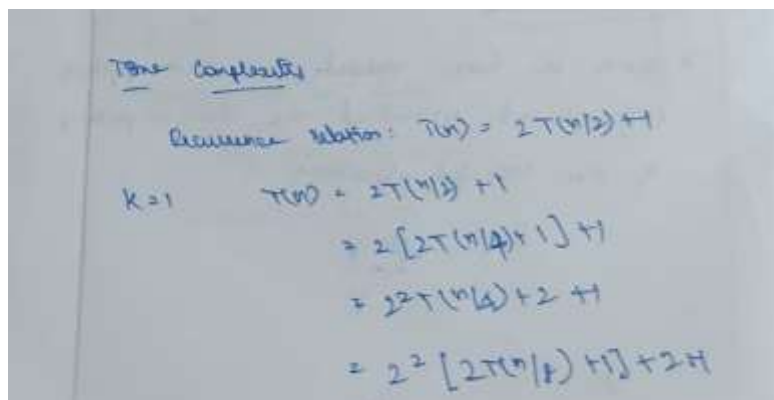 Time Complexity
Recurrence relation: T(n) = 2T(n/2)+1
K=1 T(n) = 2T(n/2) +1
= 2[2T(n/4)+1]+1
= 2²T(n/4)+2+1
= 2²[2T(n/8)+1]+2+1